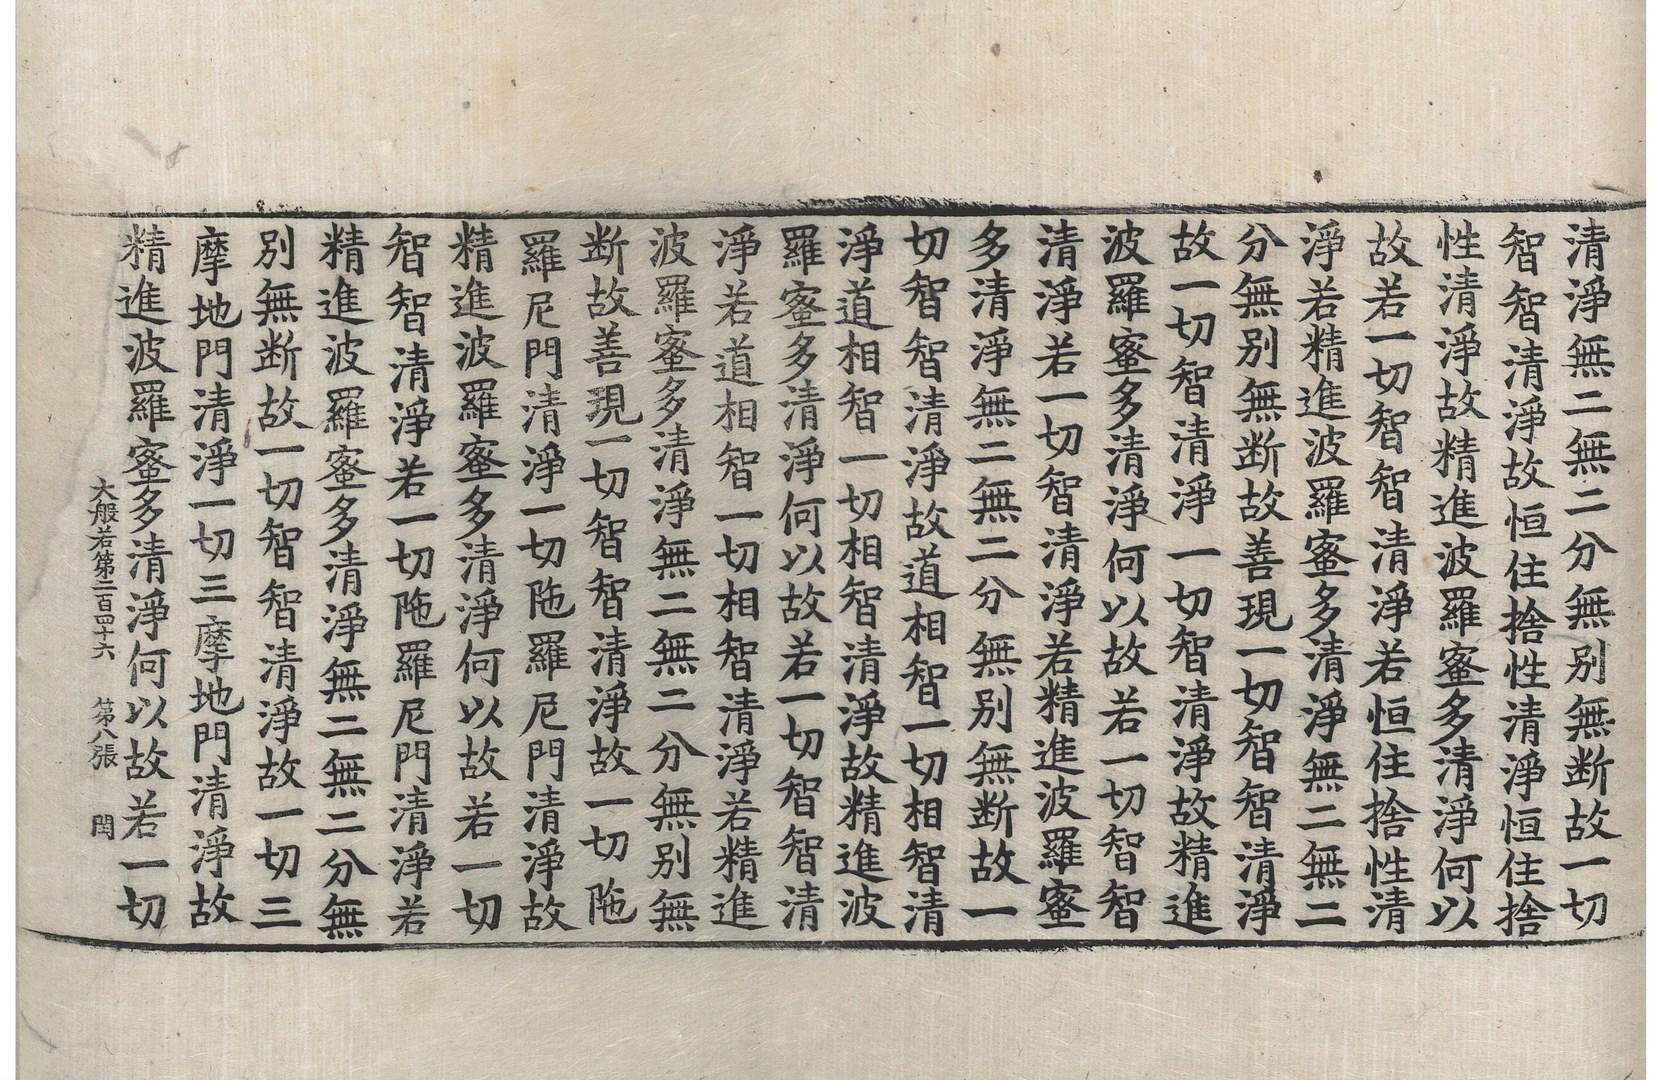 清淨無二無二分無別無断故一切
智智清淨故恒住捨性清淨恒住捨
性清淨故精進波羅蜜多清淨何以
故若一切智智清淨若恒住捨性清
淨若精進波羅蜜多清淨無二無二
分無別無断故善現一切智智清淨
故一切智清淨一切智清淨故精進
波羅蜜多清淨何以故若一切智智
清淨若一切智清淨若精進波羅蜜
多清淨無二無二分無別無断故一
切智智清淨故道相智一切相智清
淨道相智一切相智清淨故精進波
羅蜜多清淨何以故若一切智智清
淨若道相智一切相智清淨若精進
波羅蜜多清淨無二無二分無別無
断故善現一切智智清淨故一切陁
羅尼門清淨一切陁羅尼門清淨故
精進波羅蜜多清淨何以故若一切
智智清淨若一切陁羅尼門清淨若
精進波羅蜜多清淨無二無二分無
別無断故一切智智清淨故一切三
摩地門清淨一切三摩地門清淨故
精進波羅蜜多清淨何以故若一切
大般若第二百四十六 第八張 閏